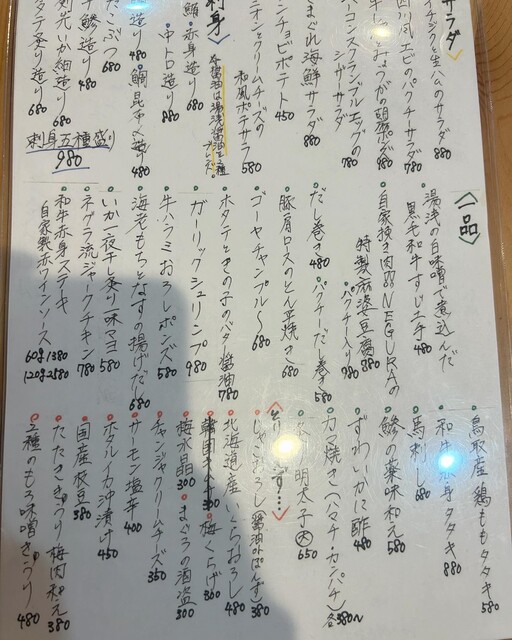 サラダ
イチジクと生ハムのサラダ 880
四川風エビのパクチーサラダ 780
980
ーコンとスクランブルエッグの
シーザーサラダ 780
まぐれ海鮮サラダ 880
ンチョビポテト 450
ニオンとクリームチーズの
和風ポテサラ 580
刺身
本醤油は湯浅醤油と2種
ブレンド
鮪 赤身造り 680
・中トロ造り 980
造り 480
・鯛昆布〆造り 480
たこぶつ 680
鯵造り 480
剣先いか細造り 680
炙り造り 680
刺身五種盛り
980
〈一品〉
湯浅の白味噌で煮込んだ
黒毛和牛すじ土手 480
自家挽き肉!! NEGURAの
特製麻婆豆腐 880
パクチー入り 980
だし巻き 480
・パクチーだし巻き 580
豚肩ロースのとん平焼き 680
ゴーヤチャンプルー 680
ホタテときのこのバター醤油 780
ガーリックシュリンプ 980
牛ハラミおろしポンズ 580
海老もちとなすの揚げだし 680
いか一夜干し炙り一味マヨ 580
ネグラ流ジャークチキン 780
和牛赤身ステーキ 60g 1380
自家製赤ワインソース 120g 2580
鳥取産鶏ももタタキ 580
和牛赤身タタキ 880
馬刺し 680
鯵の薬味和え 580
ずわいかに酢 480
カマ焼き(ハマチ・カンパチ) 各380〜
明太子 大 650
じゃこおろし(醤油orぽんず) 380
北海道産いくらおろし 480
・梅くらげ 360
梅水晶 300
・まぐろの酒盗 300
チャンジャクリームチーズ 350
サーモン塩辛 400
ホタルイカ沖漬け 450
国産枝豆 380
たたききゅうり梅肉和え 380
2種のもろ味噌きゅうり 480